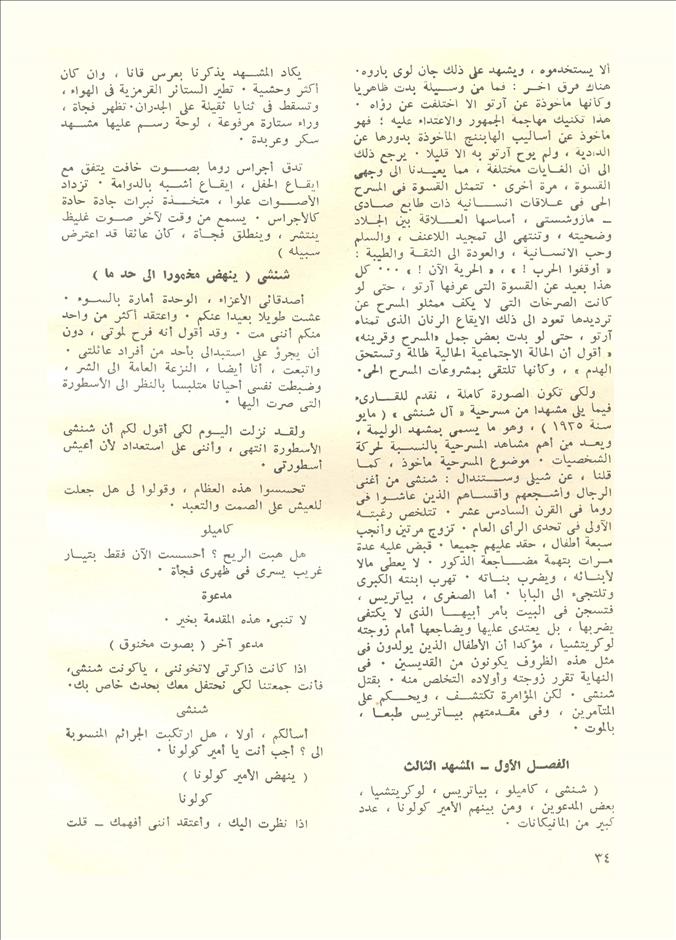 ألا يستخدموه ، ويشهد على ذلك جان لوى باروه٠
هناك فرق آخر : فما من وسيلة بدت ظاهريا
وكأنها مأخوذة عن آرتو الا اختلفت عن رؤاه ٠
هذا تكنيك مهاجمة الجمهور والاعتداء عليه ؛ فهو
مأخوذ عن أساليب الهابننج المأخوذة بدورها عن
الدادية ، ولم يوح آرتو به الا قليلا ٠ يرجع ذلك
الى أن الغايات مختلفة ، مما يعيدنا الى وجهى
القسوة ، مرة أخرى ٠ تتمثل القسوة فى المسرح
الحى فى علاقات انسانية ذات طابع صادى
ــ مازوشستى ، أساسها العلاقة بين الجلاد
وضحيته ، وتنتهى الى تمجيد اللاعنف ، والسلم
وحب الانسانية ، والعودة الى الثقة والطيبة :
« أوقفوا الحرب ! » ، « الحرية الآن ! » ٠٠٠ كل
هذا بعيد عن القسوة التى عرفها آرتو ، حتى لو
كانت الصرخات التى لا يكف ممثلو المسرح عن
ترديدها تعود الى ذلك الايقاع الرنان الذى تمناه
آرتو ، حتى لو بدت بعض جمل «المسرح وقرينه»
« أقول أن الحالة الاجتماعية الحالية ظالمة وتستحق
الهدم » ، وكأنها تلتقى بمشروعات المسرح الحى٠
ولكى تكون الصورة كاملة ، نقدم للقارىء
فيما يلى مشهدا من مسرحية « آل شنشى » ( مايو
سنة ١٩٣٥ ) ، وهو ما يسمى بمشهد الوليمة ،
ويعد من أهم مشاهد المسرحية بالنسبة لحركة
الشخصيات ٠ موضوع المسرحية مأخوذ ، كما
قلنا ، عن شيلى وستندال : شنشى من أغنى
الرجال وأشجعهم وأقساهم الذين عاشوا فى
روما فى القرن السادس عشر ٠ تتلخص رغبته
الأولى فى تحدى الرأى العام ٠ تزوج مرتين وأنجب
سبعة أطفال ، حقد عليهم جميعا ٠ قبض عليه عدة
مرات بتهمة مضاجعة الذكور ٠ لا يعطى مالا
لأبنائه ، ويضرب بناته ٠ تهرب ابنته الكبرى
وتلتجىء الى البابا ٠ أما الصغرى ، بياتريس ،
فتسجن فى البيت بأمر أبيها الذى لا يكتفى
بضربها ، بل يعتدى عليها ويضاجعها أمام زوجته
لوكريتشيا ، مؤكدا أن الأطفال الذين يولدون فى
مثل هذه الظروف يكونون من القديسين ٠ فى
النهاية تقرر زوجته وأولاده التخلص منه ٠ يقتل
شنشى ٠ لكن المؤامرة تكتشف ، ويحكم على
المتآمرين ، وفى مقدمتهم بياتريس طبعا ،
بالموت ٠
الفصل الأول ــ المشهد الثالث
( شنشى ، كاميلو ، بياتريس ، لوكريتشيا ،
بعض المدعوين ، ومن بينهم الأمير كولونا ، عدد
كبير من المانيكانات ٠
يكاد المشهد يذكرنا بعرس قانا ، وان كان
أكثر وحشية ٠ تطير الستائر القرمزية فى الهواء ،
وتسقط فى ثنايا ثقيلة على الجدران٠ تظهر فجأة ،
وراء ستارة مرفوعة ، لوحة رسم عليها مشهد
سكر وعربدة ٠
تدق أجراس روما بصوت خافت يتفق مع
ايقاع الحفل ، ايقاع أشبه بالدوامة ٠ تزداد
الأصوات علوا ، متخذة نبرات جادة حادة
كالأجراس ٠ يسمع من وقت لآخر صوت غليظ
ينتشر ، وينطلق فجأة ، كأن عائقا قد اعترض
سبيله )
شنشى ( ينهض مخمورا الى حد ما )
أصدقائى الأعزاء ، الوحدة أمارة بالسوء ٠
عشت طويلا بعيدا عنكم ٠ وأعتقد أكثر من واحد
منكم أننى مت ٠ وقد أقول أنه فرح لموتى ، دون
أن يجرؤ على استبدالى بأحد من أفراد عائلتى ٠
واتبعت ، أنا أيضا ، النزعة العامة الى الشر ،
وضبطت نفسى أحيانا متلبسا بالنظر الى الأسطورة
التى صرت اليها ٠
ولقد نزلت اليوم لكى أقول لكم أن شنشى
الأسطورة انتهى ، وأننى على استعداد لأن أعيش
أسطورتى ٠
تحسسوا هذه العظام ، وقولوا لى هل جعلت
للعيش على الصمت والتعبد ٠
كاميلو
هل هبت الريح ؟ أحسست الآن فقط بتيار
غريب يسرى فى ظهرى فجأة ٠
مدعوة
لا تنبىء هذه المقدمة بخير ٠
مدعو آخر ( بصوت مخنوق )
اذا كانت ذاكرتى لاتخوننى ، ياكونت شنشى،
فأنت جمعتنا لكى نحتفل معك بحدث خاص بك٠
شنشى
أسألكم ، أولا ، هل ارتكبت الجرائم المنسوبة
الى ؟ أجب أنت يا أمير كولونا ٠
( ينهض الأمير كولونا )
كولونا
اذا نظرت اليك ، وأعتقد أننى أفهمك ــ قلت
٣٤